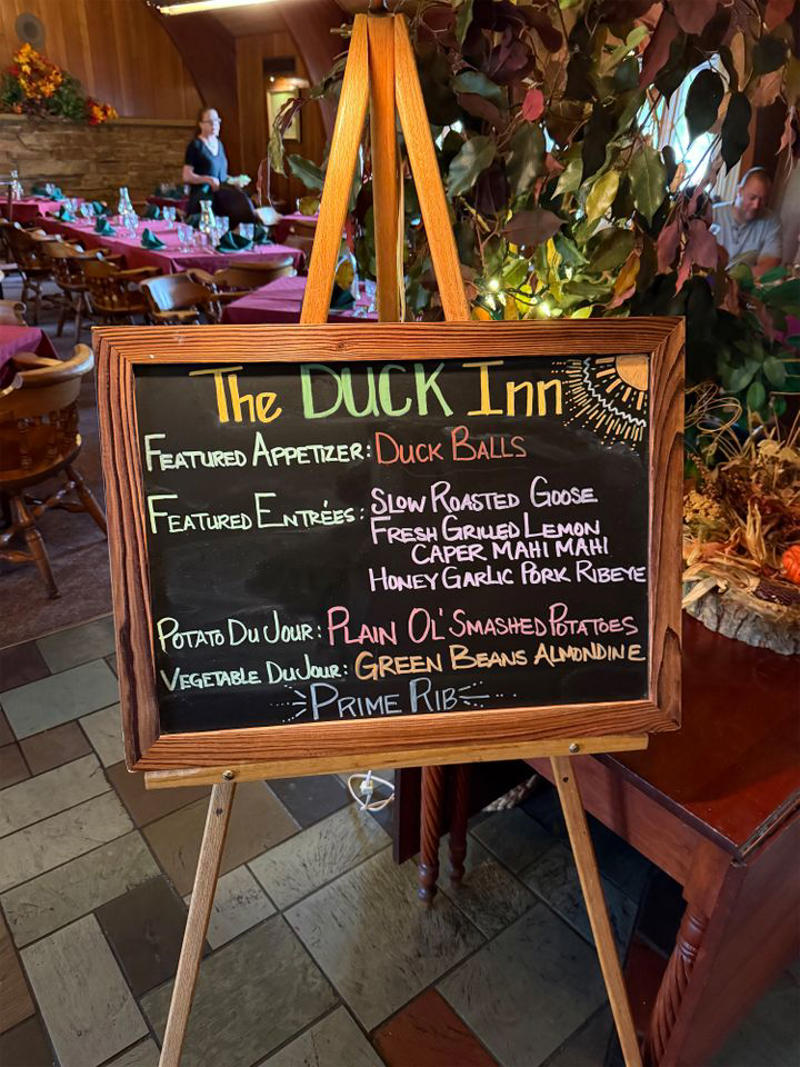 The DUCK Inn
FEATURED APPETIZER: DUCK BALLS
FEATURED ENTRÉES: SLOW ROASTED GOOSE
FRESH GRILLED LEMON
CAPER MAHI MAHI
HONEY GARLIC PORK RIBEYE
POTATO DU JOUR: PLAIN OL' SMASHED POTATOES
VEGETABLE DU JOUR: GREEN BEANS ALMONDINE
PRIME RIB